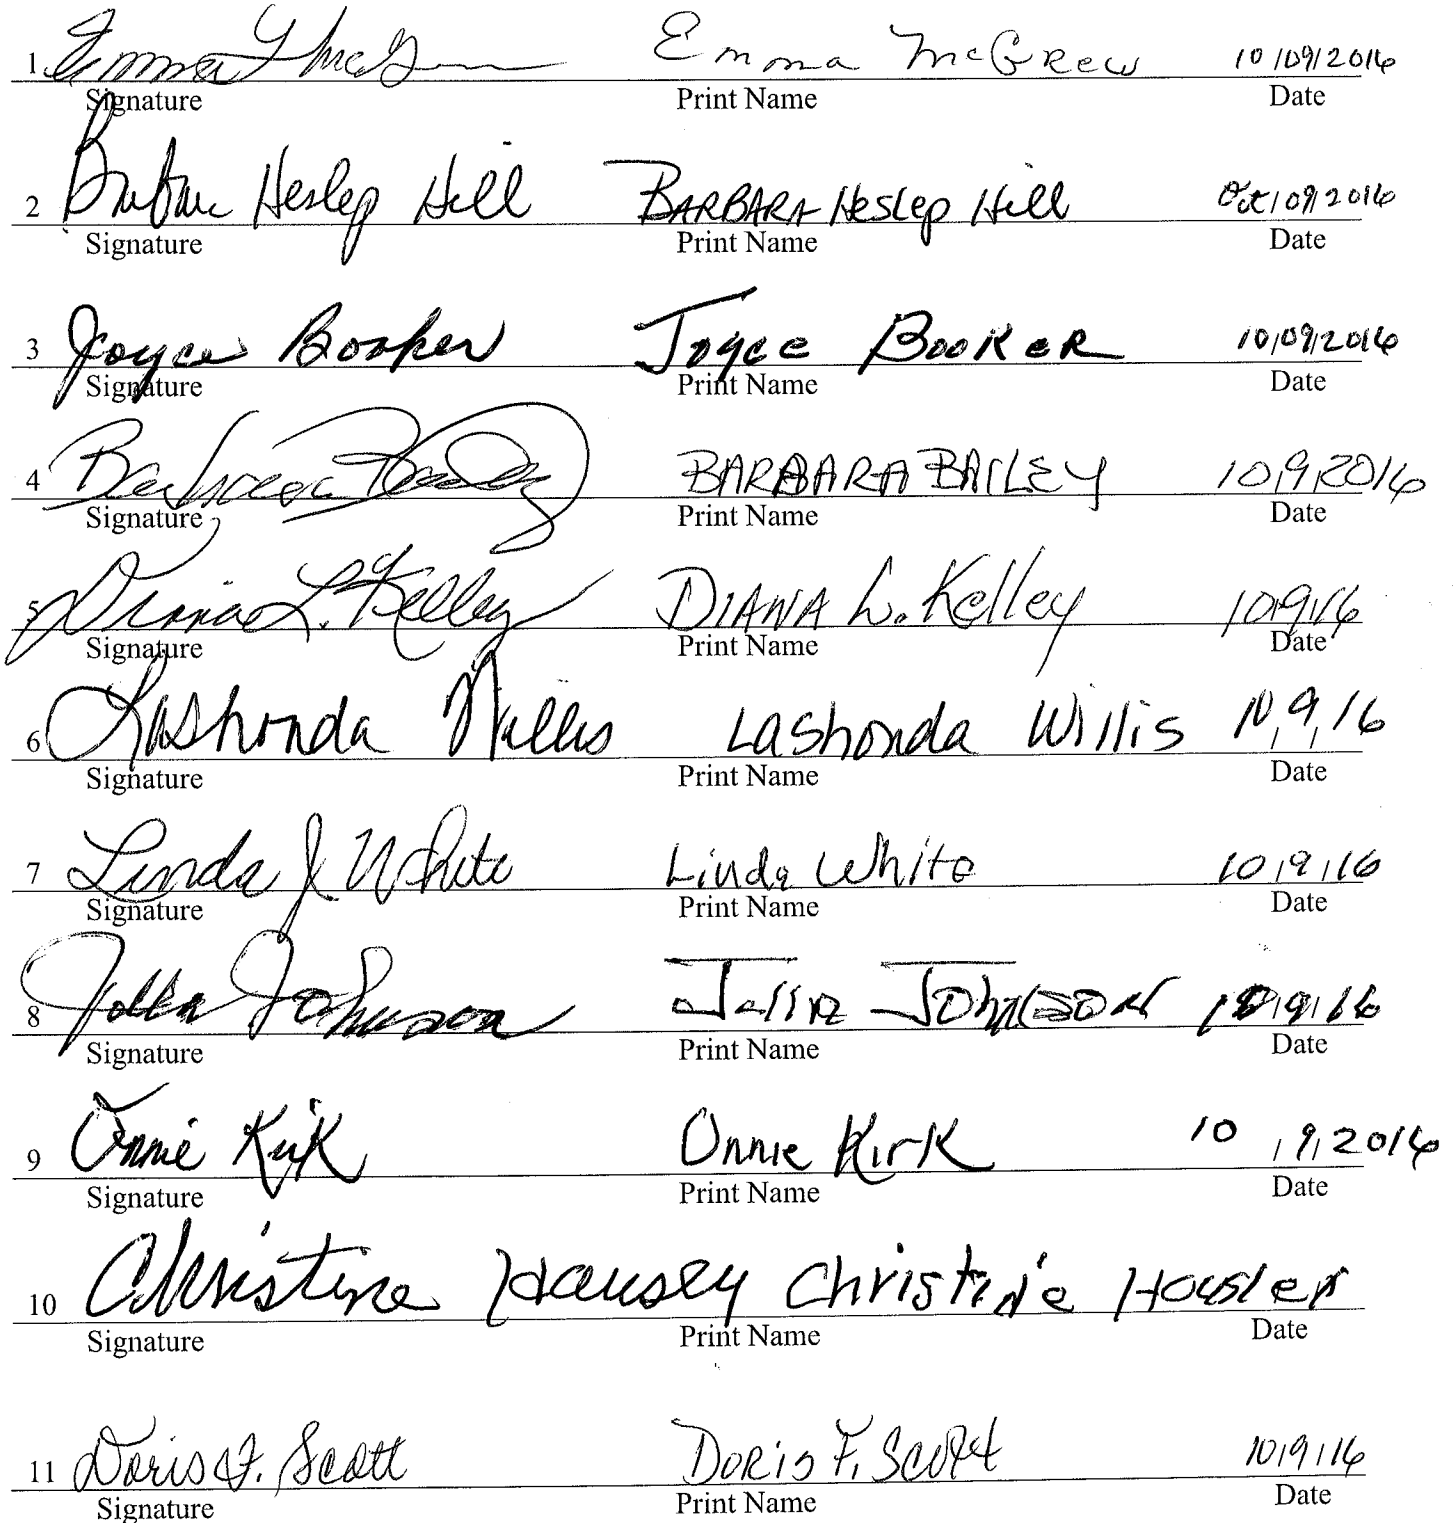 1 Emma Y McG Emma McGrew 10/09/2016
Signature Print Name Date
2 Barbara Heslep Hill BARBARA Heslep Hill Oct/09/2016
Signature Print Name Date
3 Joyce Booker Joyce BOOKER 10/09/2016
Signature Print Name Date
4 Barbara Bailey BARBARA BAILEY 10/9/2016
Signature Print Name Date
5 Diana L. Kelley DIANA L. Kelley 10/9/16
Signature Print Name Date
6 Lashonda Willis Lashonda Willis 10/9/16
Signature Print Name Date
7 Linda J White Linda White 10/9/16
Signature Print Name Date
8 Johnson JOHNSON 10/9/16
Signature Print Name Date
9 Onnie Kirk Onnie Kirk 10 /9/2016
Signature Print Name Date
10 Christine Christine
Signature Print Name Date
11 Doris F. Scott DORIS F. Scott 10/9/16
Signature Print Name Date